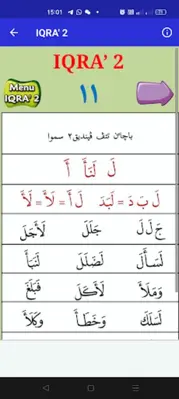 15:01
IQRA' 2
IQRA' 2
Menu
IQRA' 2
١١
باچاٴن تتڤ ڤينديق٢ سموا
لَ لَنَأَ أَ
لَ بَ دَ = لَبَدَ لَ أَ = لَأَ = لَأَ
جَ لَ لَ جَلَلَ لَأَجَلَ
لَسَأَلَ لَضَلَلَ لَنَبَأَ
وَمَلَأَ لَأَكَلَ فَبَلَغَ
لَسَلَكَ وَخَطَأَ وَكَلَأَ